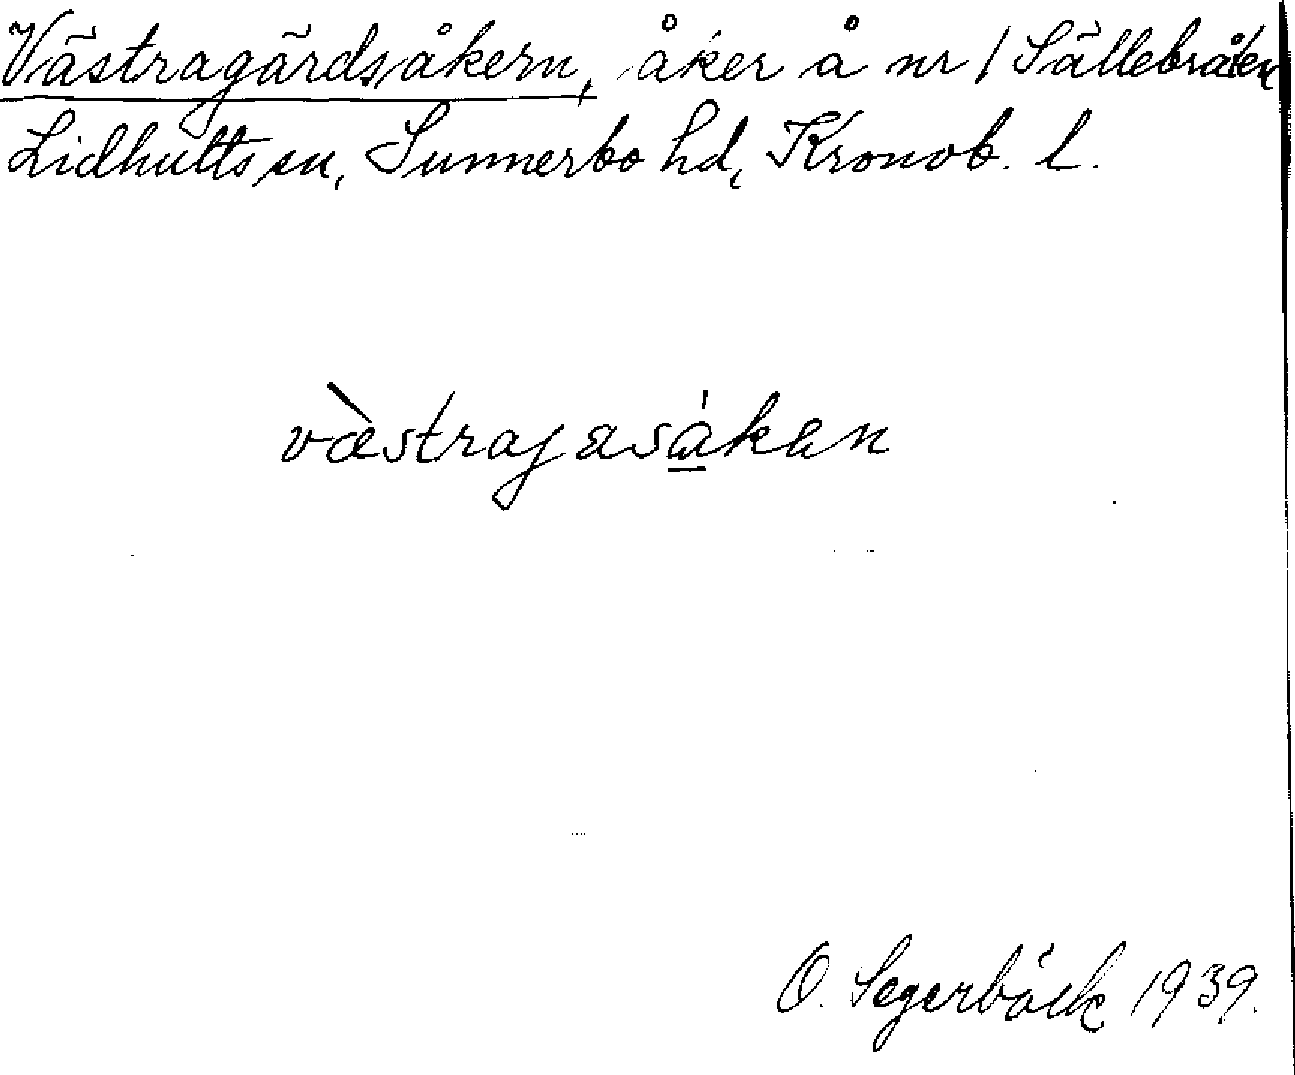 Västragårdsåkern, åker å nr 1 Sällebråten
Lidhults sn, Sunnerbo hd, Kronob. l.
væ̀stragasåkan
O. Segerbäck 1939.